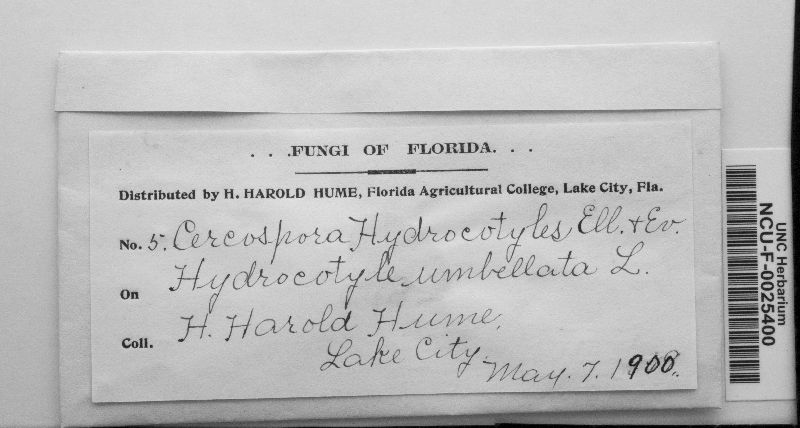 . . .FUNGI OF FLORIDA. . .
Distributed by H. HAROLD HUME, Florida Agricultural College, Lake City, Fla.
No. 5. Cercospora Hydrocotyles Ell. & Ev.
On Hydrocotyle umbellata L.
Coll. H. Harold Hume,
Lake City,
May. 7. 1900.
UNC Herbarium
NCU-F-0025400